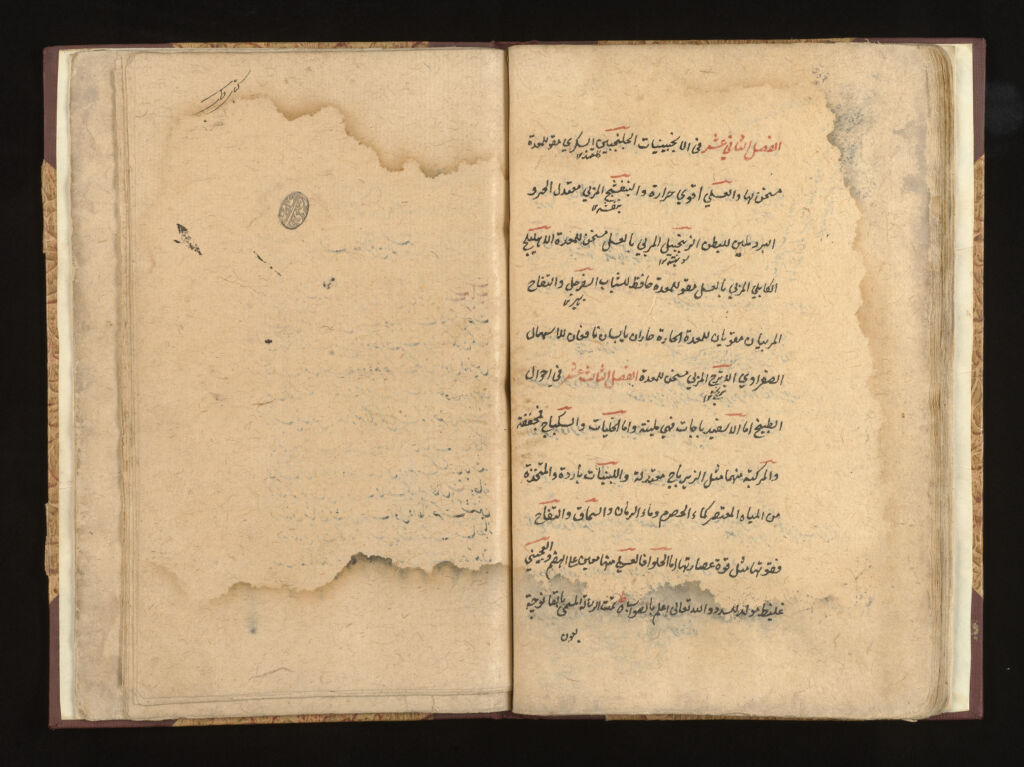 الفصل الثاني عشر في الانجبينيات الجلنجبين السكري مقو للمعدة
مسخن لها والعسلي أقوي حرارة والبنفسج المربي معتدل الحر و
البرد ملين للبطن الزنجبيل المربي بالعسل مسخن للمعدة الاهليلج
الكابلي المربي بالعسل مقو للمعدة حافظ للشباب السفرجل والتفاح
المربيان مقويان للمعدة الحارة حاران يابسان نافعان للاسهال
الصفراوي الاترج المربي مسخن للمعدة الفصل الثالث عشر في احوال
الطبيخ اما الاسفيدباجات فهي ملينة واما القليات والسكباج فمجففة
والمركبة منهما مثل الزيرباج معتدلة واللبنيات باردة والمتخذة
من المياه المعتصر كماء الحصرم وماء الرمان والسماق والتفاح
فقوتها مثل قوة عصارتها اما الحلوا فالعسلي منها معين علي الهضم والعجيني
غليظ مولد للسدد والله تعالى اعلم بالصواب تمت الرسالة المسمي بالقانونچية
بعون